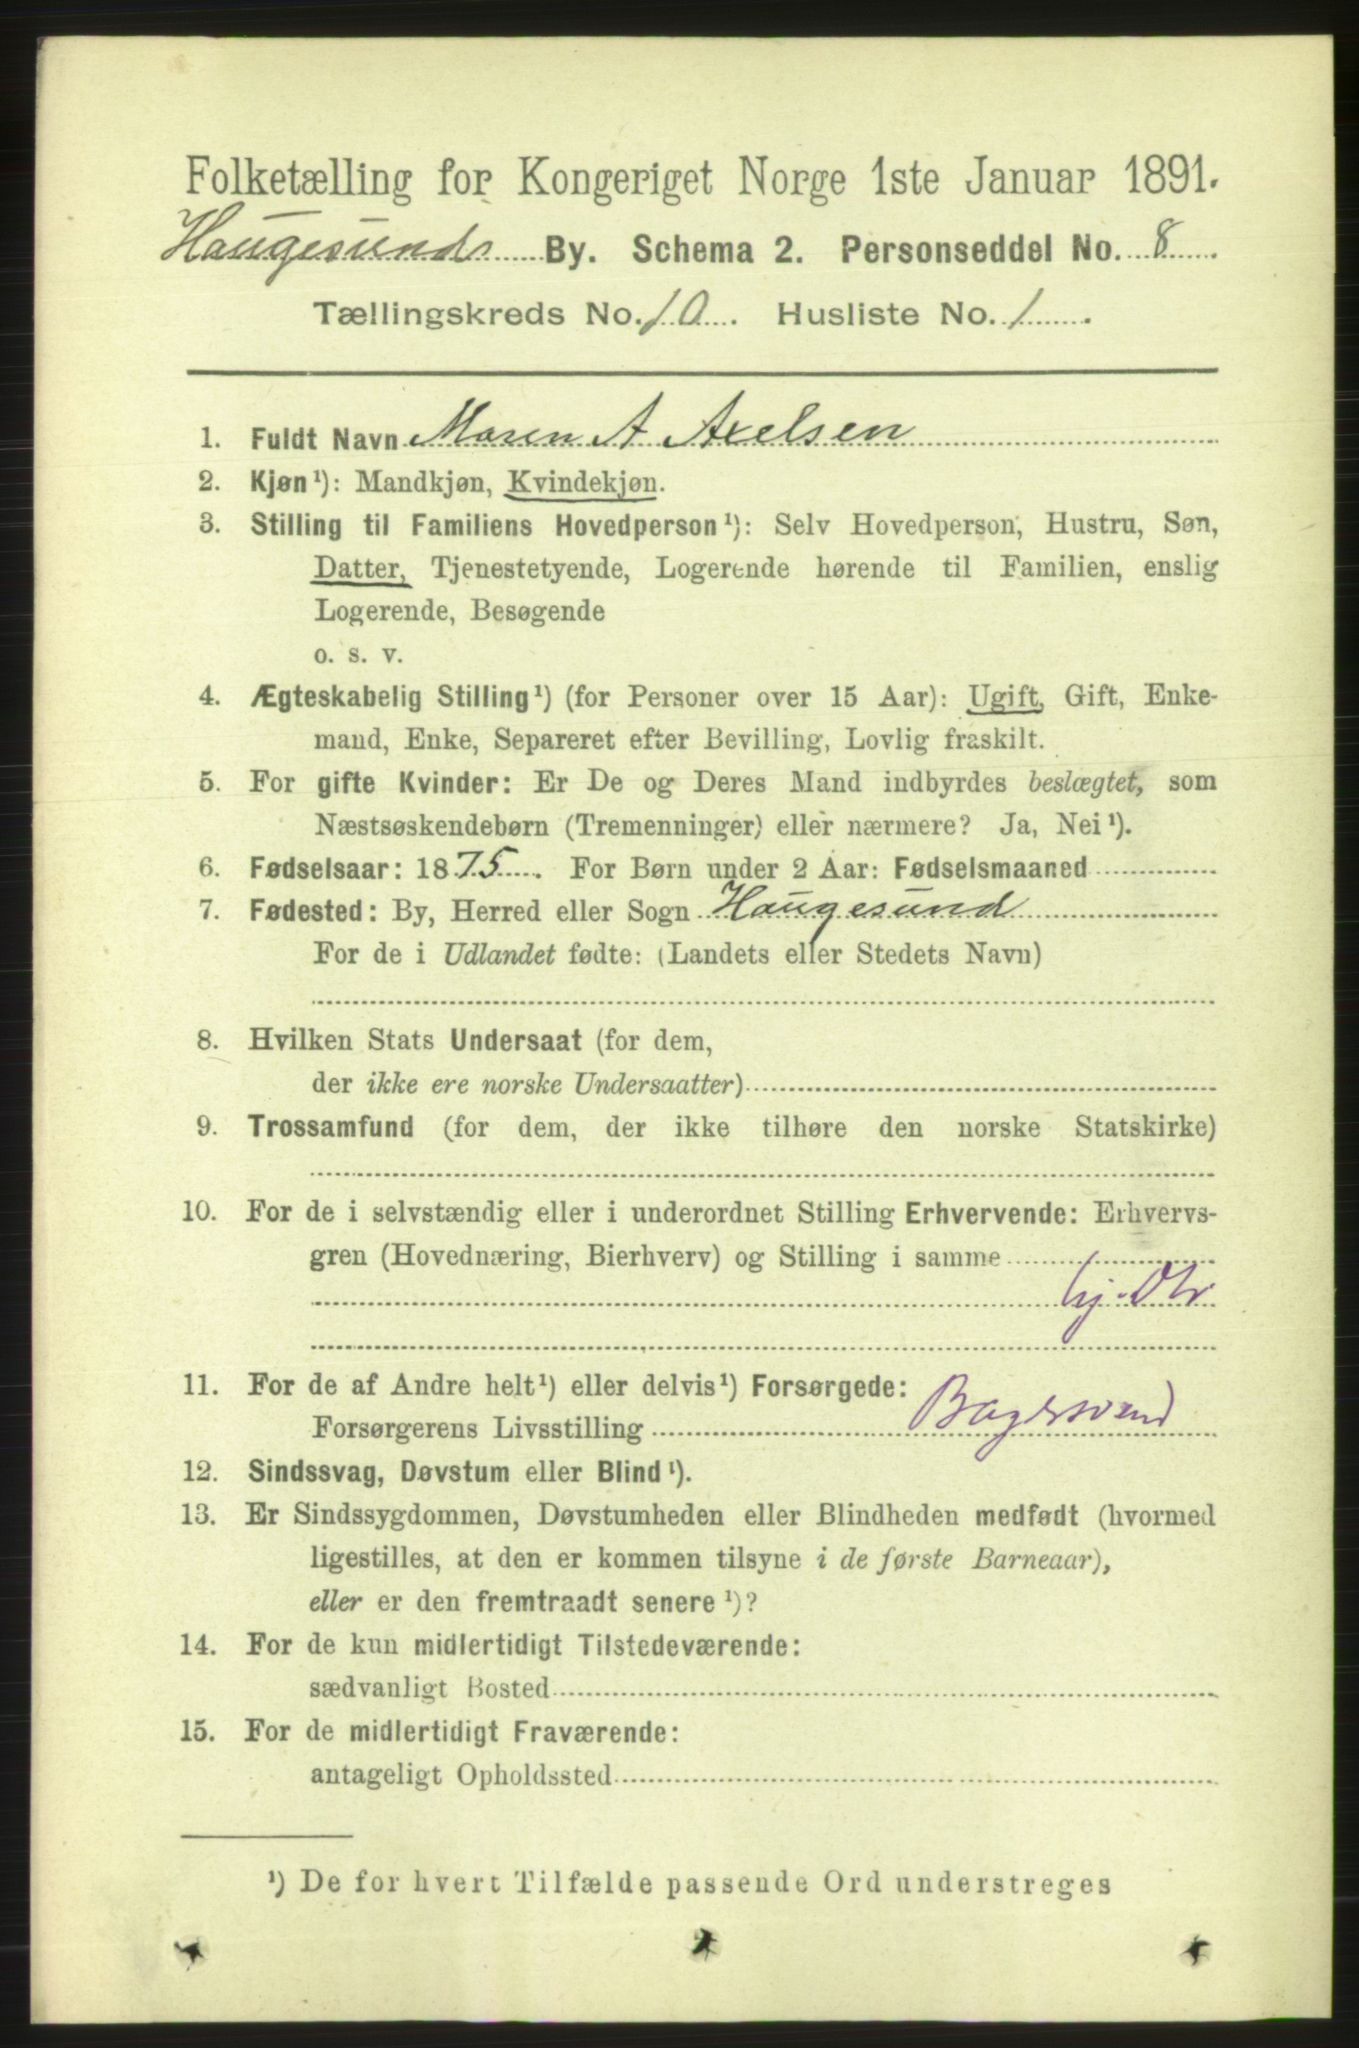 Folketælling for Kongeriget Norge 1ste Januar 1891.
Haugesunds By. Schema 2. Personseddel No. 8
Tællingskreds No. 10. Husliste No. 1.
1. Fuldt Navn Maren A Axelsen
2. Kjøn¹): Mandkjøn, Kvindekjøn.
3. Stilling til Familiens Hovedperson¹): Selv Hovedperson, Hustru, Søn,
Datter, Tjenestetyende, Logerende hørende til Familien, enslig
Logerende, Besøgende
o. s. v.
4. Ægteskabelig Stilling¹) (for Personer over 15 Aar): Ugift, Gift, Enke-
mand, Enke, Separeret efter Bevilling, Lovlig fraskilt.
5. For gifte Kvinder: Er De og Deres Mand indbyrdes beslægtet, som
Næstsøskendebørn (Tremenninger) eller nærmere? Ja, Nei¹).
6. Fødselsaar: 1875. For Børn under 2 Aar: Fødselsmaaned
7. Fødested: By, Herred eller Sogn Haugesund
For de i Udlandet fødte: (Landets eller Stedets Navn)
8. Hvilken Stats Undersaat (for dem,
der ikke ere norske Undersaatter)
9. Trossamfund (for dem, der ikke tilhøre den norske Statskirke)
10. For de i selvstændig eller i underordnet Stilling Erhvervende: Erhvervs-
gren (Hovednæring, Bierhverv) og Stilling i samme
11. For de af Andre helt¹) eller delvis¹) Forsørgede:
Forsørgerens Livsstilling Bagersvend
12. Sindssvag, Døvstum eller Blind¹).
13. Er Sindssygdommen, Døvstumheden eller Blindheden medfødt (hvormed
ligestilles, at den er kommen tilsyne i de første Barneaar),
eller er den fremtraadt senere¹)?
14. For de kun midlertidigt Tilstedeværende:
sædvanligt Bosted
15. For de midlertidigt Fraværende:
antageligt Opholdssted
¹) De for hvert Tilfælde passende Ord understreges